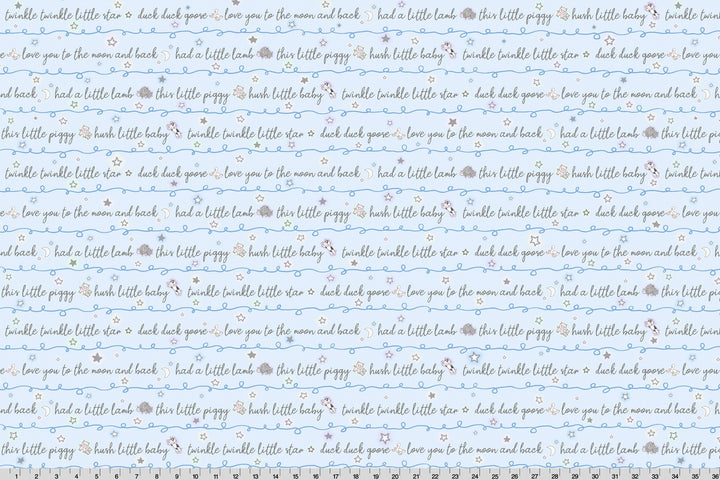 twinkle twinkle little star duck duck goose love you to the moon and back had a little lamb this little piggy hush little baby twinkle twin
love you to the moon and back had a little lamb this little piggy hush little baby twinkle twinkle little star duck duck goose love you
nd back had a little lamb this little piggy hush little baby twinkle twinkle little star duck duck goose love you to the moon and back ha
this little piggy hush little baby twinkle twinkle little star duck duck goose love you to the moon and back had a little lamb this little
twinkle twinkle little star duck duck goose love you to the moon and back had a little lamb this little piggy hush little baby twinkle twin
love you to the moon and back had a little lamb this little piggy hush little baby twinkle twinkle little star duck duck goose love you
nd back had a little lamb this little piggy hush little baby twinkle twinkle little star duck duck goose love you to the moon and back ha
this little piggy hush little baby twinkle twinkle little star duck duck goose love you to the moon and back had a little lamb this little
twinkle twinkle little star duck duck goose love you to the moon and back had a little lamb this little piggy hush little baby twinkle twin
love you to the moon and back had a little lamb this little piggy hush little baby twinkle twinkle little star duck duck goose love you
nd back had a little lamb this little piggy hush little baby twinkle twinkle little star duck duck goose love you to the moon and back ha
this little piggy hush little baby twinkle twinkle little star duck duck goose love you to the moon and back had a little lamb this little
1 2 3 4 5 6 7 8 9 10 11 12 13 14 15 16 17 18 19 20 21 22 23 24 25 26 27 28 29 30 31 32 33 34 35 36